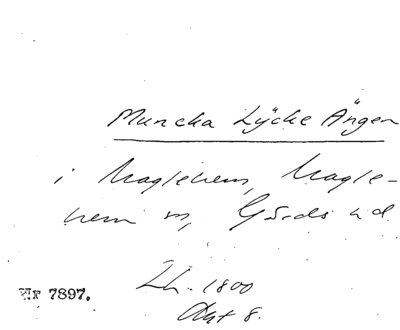 Muncka Lÿcke Ängen
i Maglehem, Magle-
hem sn, Gärds hd
Lh. 1800
Akt 8.
Nr 7897.